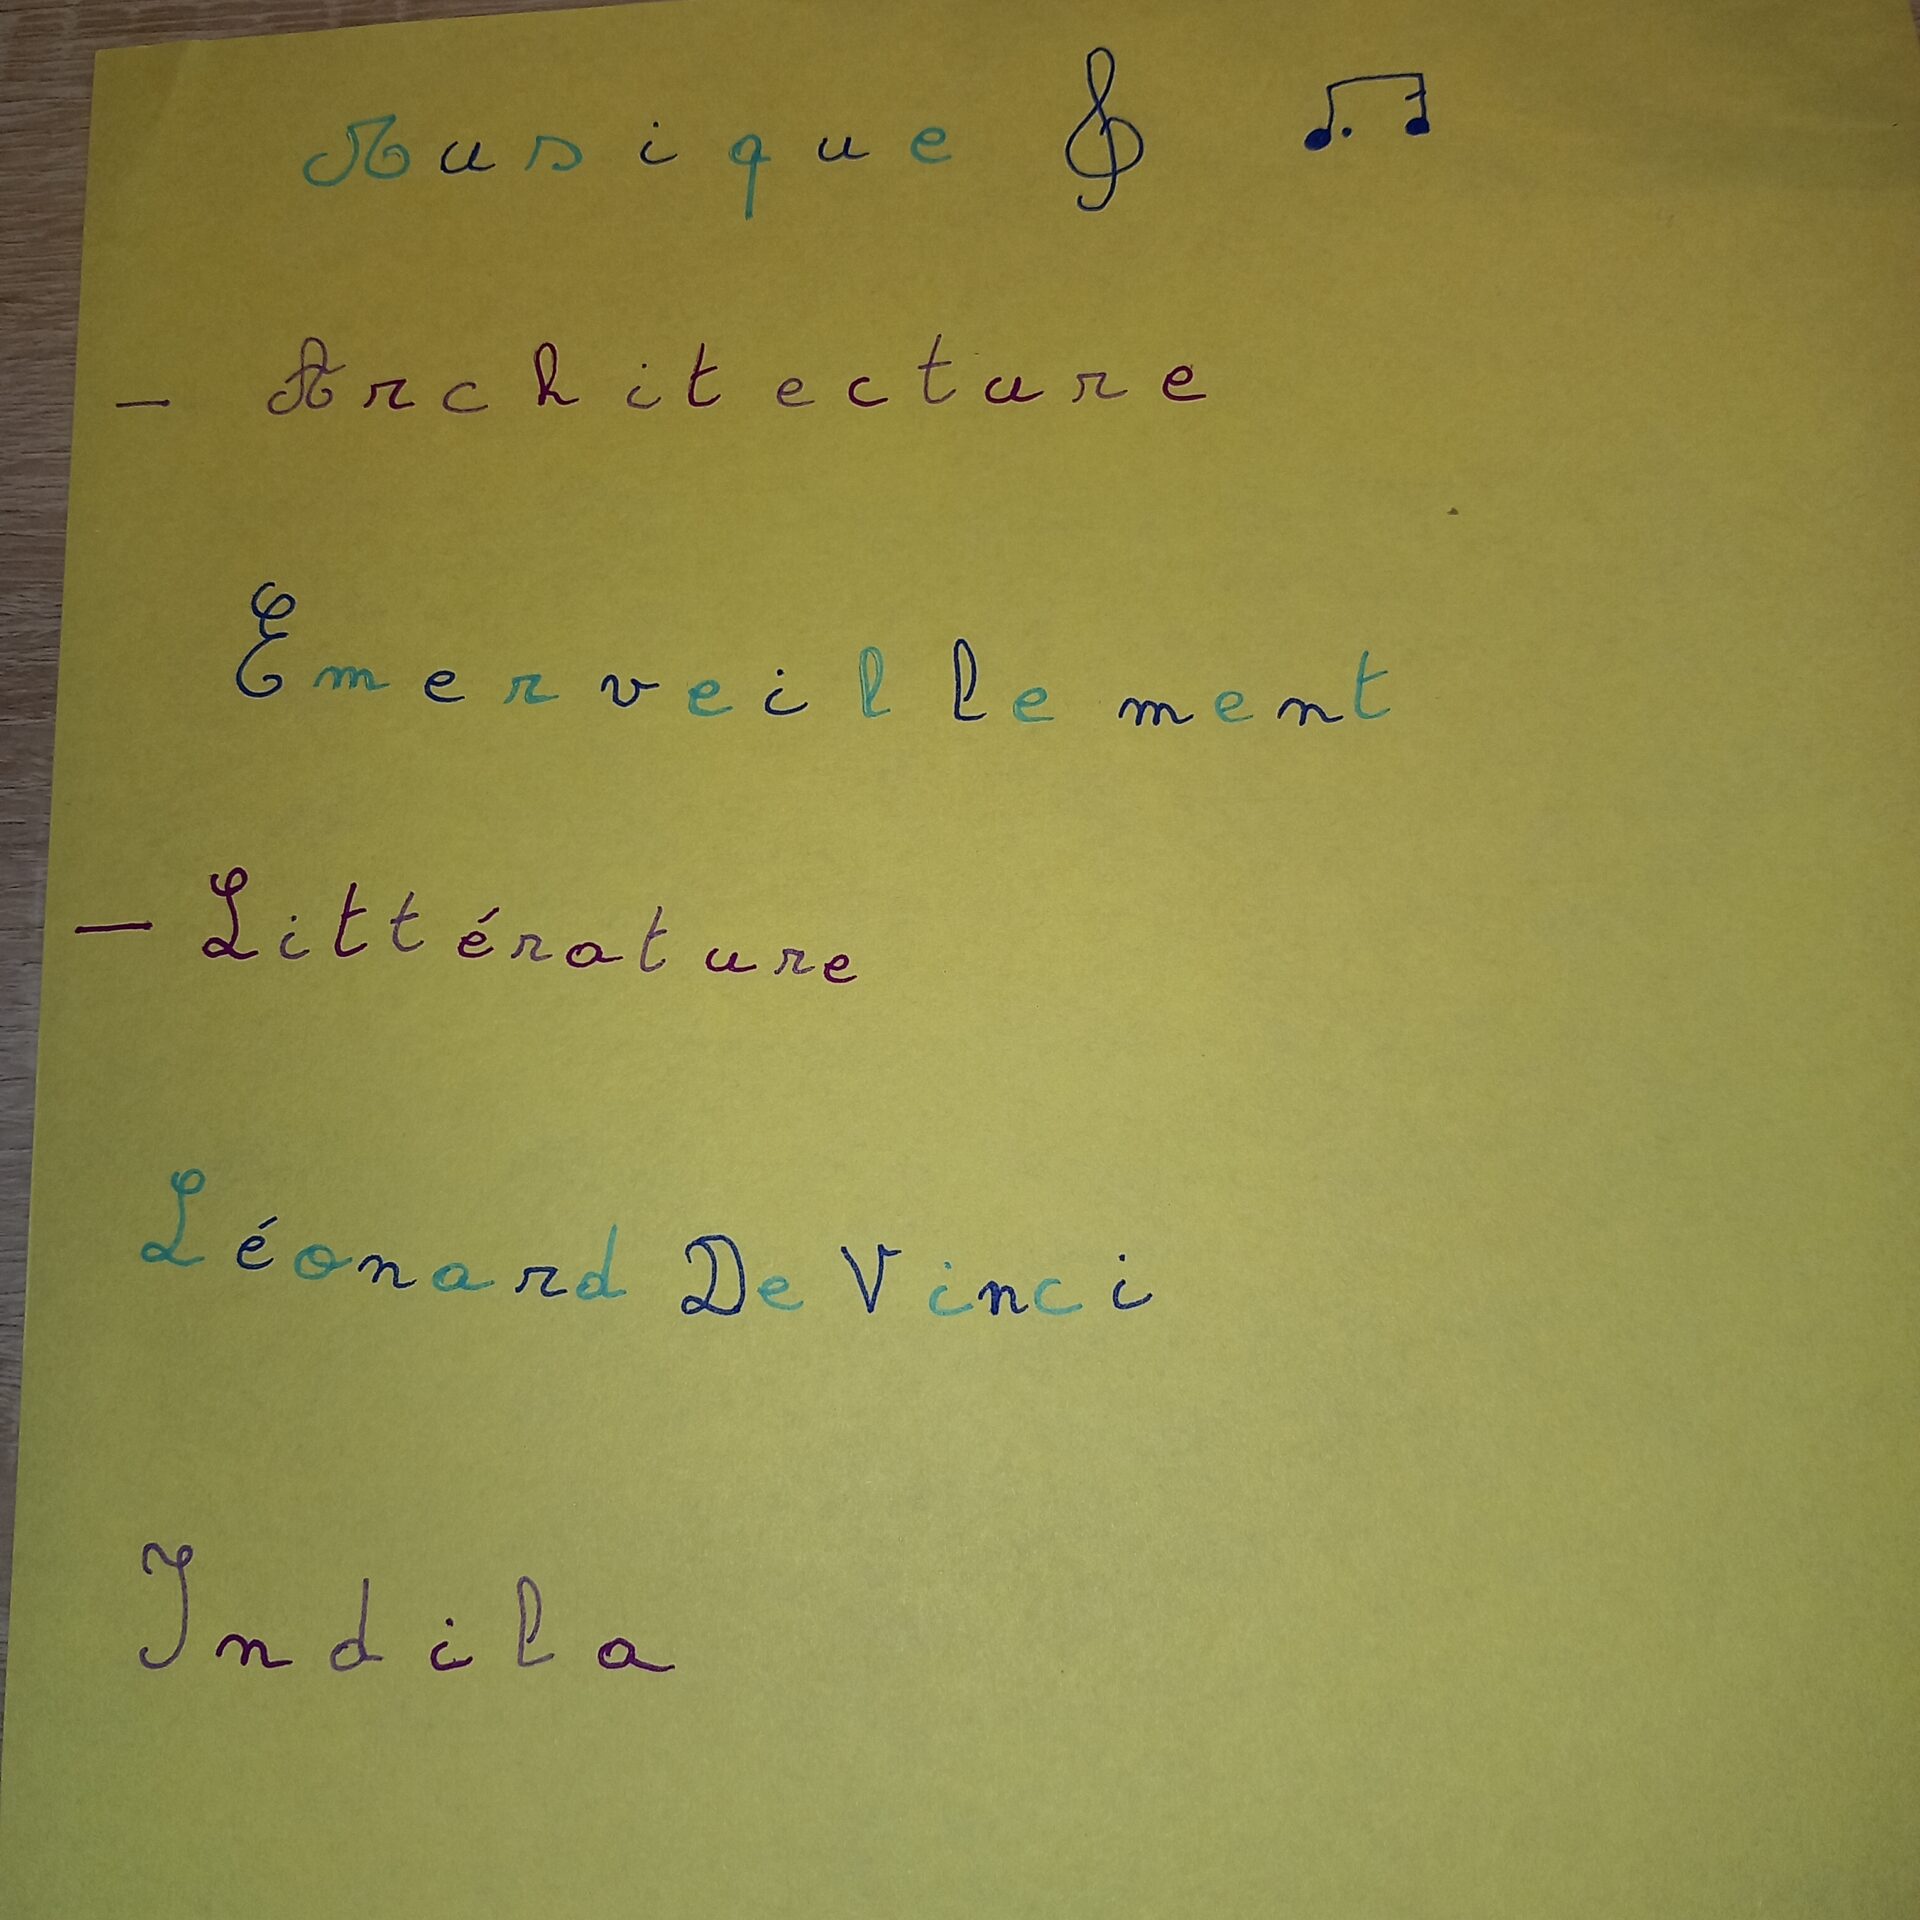 Musique
- Architecture
Emerveillement
- Littérature
Léonard De Vinci
Indila